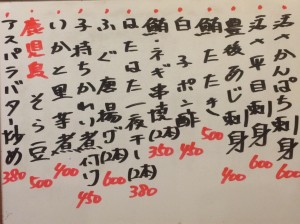 活さかんぱち刺身 600
活さわら刺身 600
豊後あじ刺身 400
鮪たたき 500
白子ポン酢 450
鮪・ネギ串焼(2本) 350
はたはた一夜干し(2本) 380
ふぐ唐揚げ(2本)
子持ちかれい煮付け 450
いかと里芋煮 400
鹿児島そら豆 500
アスパラバター炒め 380